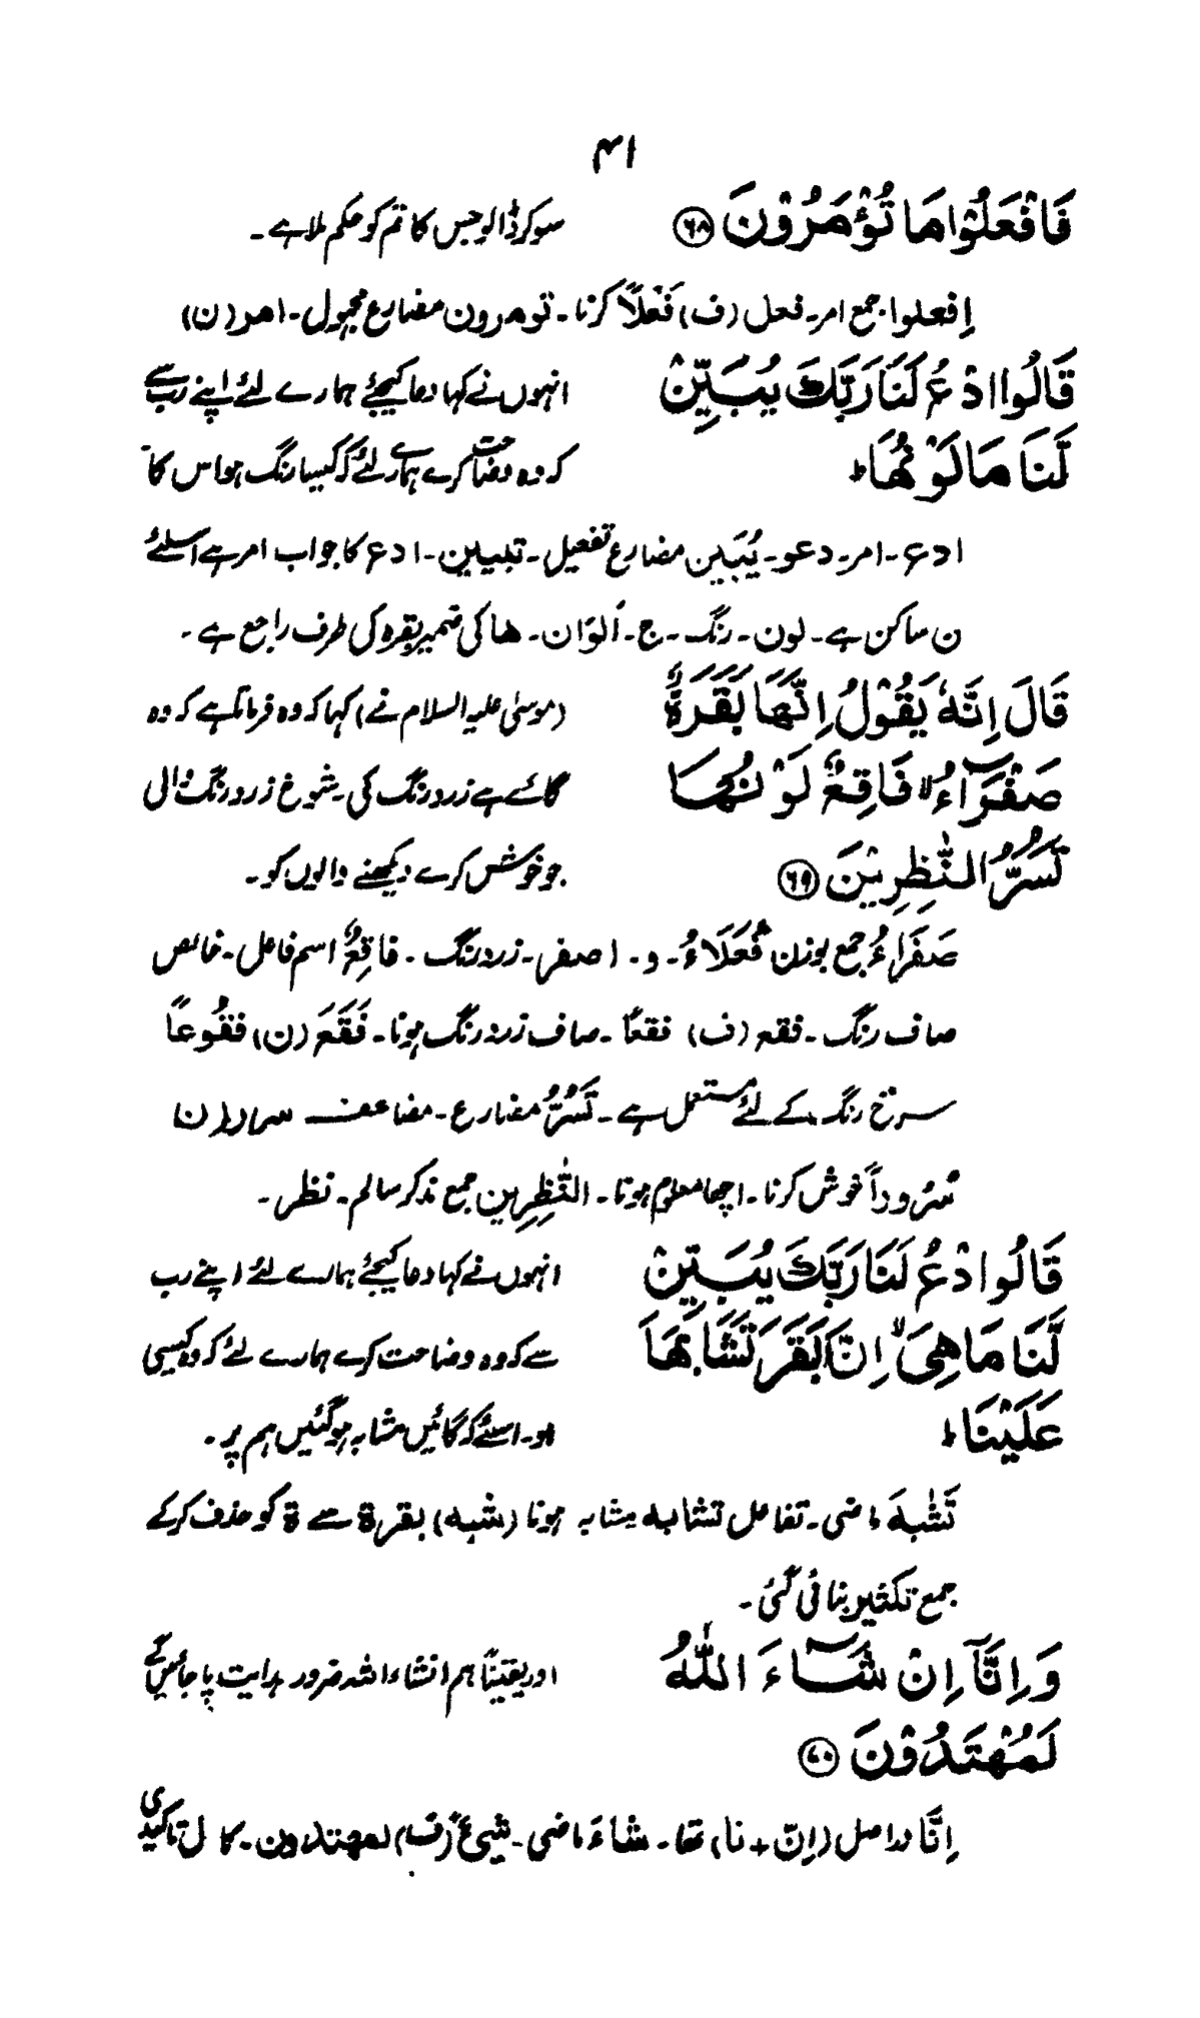 ۴۱
فَافْعَلُوْا مَا تُؤْمَرُوْنَ ﴿۶۸﴾ سو کر ڈالو جس کا تم کو حکم ملا ہے ۔
اِفعلوا جمع امر۔ فعل (ف) فَعْلاً کرنا ۔ تومرون مضارع مجہول ۔ امر (ن)
قَالُوا ادْعُ لَنَا رَبَّكَ يُبَيِّنْ انہوں نے کہا دعا کیجئے ہمارے لئے اپنے رب سے
لَّنَا مَا لَوْنُهَا ؕ کہ وہ وضاحت کرے ہمارے لئے کہ کیسا رنگ ہو اس کا ۔
ادع ۔ امر۔ دعو ۔ یُبَیِّن مضارع تفعیل ۔ تبیین ۔ ادع کا جواب امر ہے اسلئے
ن ساکن ہے ۔ لون ۔ رنگ ۔ ج ۔ اَلْوَان ۔ ھا کی ضمیر بقرہ کی طرف راجع ہے ۔
قَالَ اِنَّهٗ يَقُوْلُ اِنَّهَا بَقَرَةٌ (موسیٰ علیہ السلام نے) کہا کہ وہ فرماتا ہے کہ وہ
صَفْرَآءُ ۙ فَاقِعٌ لَّوْنُهَا گائے ہے زرد رنگ کی شوخ زرد رنگ والی
تَسُرُّ النّٰظِرِيْنَ ﴿۶۹﴾ جو خوش کرے دیکھنے والوں کو ۔
صَفَرَاءُ جمع بوزن فُعَلَاءُ ۔ و ۔ اصفر ۔ زرد رنگ ۔ فاقِعٌ اسم فاعل ۔ خالص
صاف رنگ ۔ فقع (ف) فقعًا ۔ صاف زرد رنگ ہونا ۔ فَقَعَ (ن) فقُوعاً
سرخ رنگ کے لئے مستعمل ہے ۔ تَسُرُّ مضارع ۔ مضاعف سرر (ن
سُرُوراً خوش کرنا ۔ اچھا معلوم ہونا ۔ النّٰظِرِین جمع مذکر سالم ۔ نظر ۔
قَالُوا ادْعُ لَنَا رَبَّكَ يُبَيِّنْ انہوں نے کہا دعا کیجئے ہمارے لئے اپنے رب
لَّنَا مَا هِيَ ۙ اِنَّ الْبَقَرَ تَشَابَهَ سے کہ وہ وضاحت کرے ہمارے لئے کہ وہ کیسی
عَلَيْنَا ؕ ہو ۔ اسلئے کہ گائیں مشابہ ہو گئیں ہم پر ۔
تَشٰبَهَ ماضی ۔ تفاعل تشابہ مشابہ ہونا (شبہ) بقرة سے ة کو حذف کرکے
جمع تکثیر بنائی گئی ۔
وَاِنَّآ اِنْ شَآءَ اللّٰهُ اور یقیناً ہم انشاءاللہ ضرور ہدایت پا جائیں گے
لَمُهْتَدُوْنَ ﴿۷۰﴾
اِنَّا دراصل (اِنّ + نا) تھا ۔ شاءَ ماضی ۔ شیءٌ (ف) لمهتدون ۔ کا ل تاکیدی